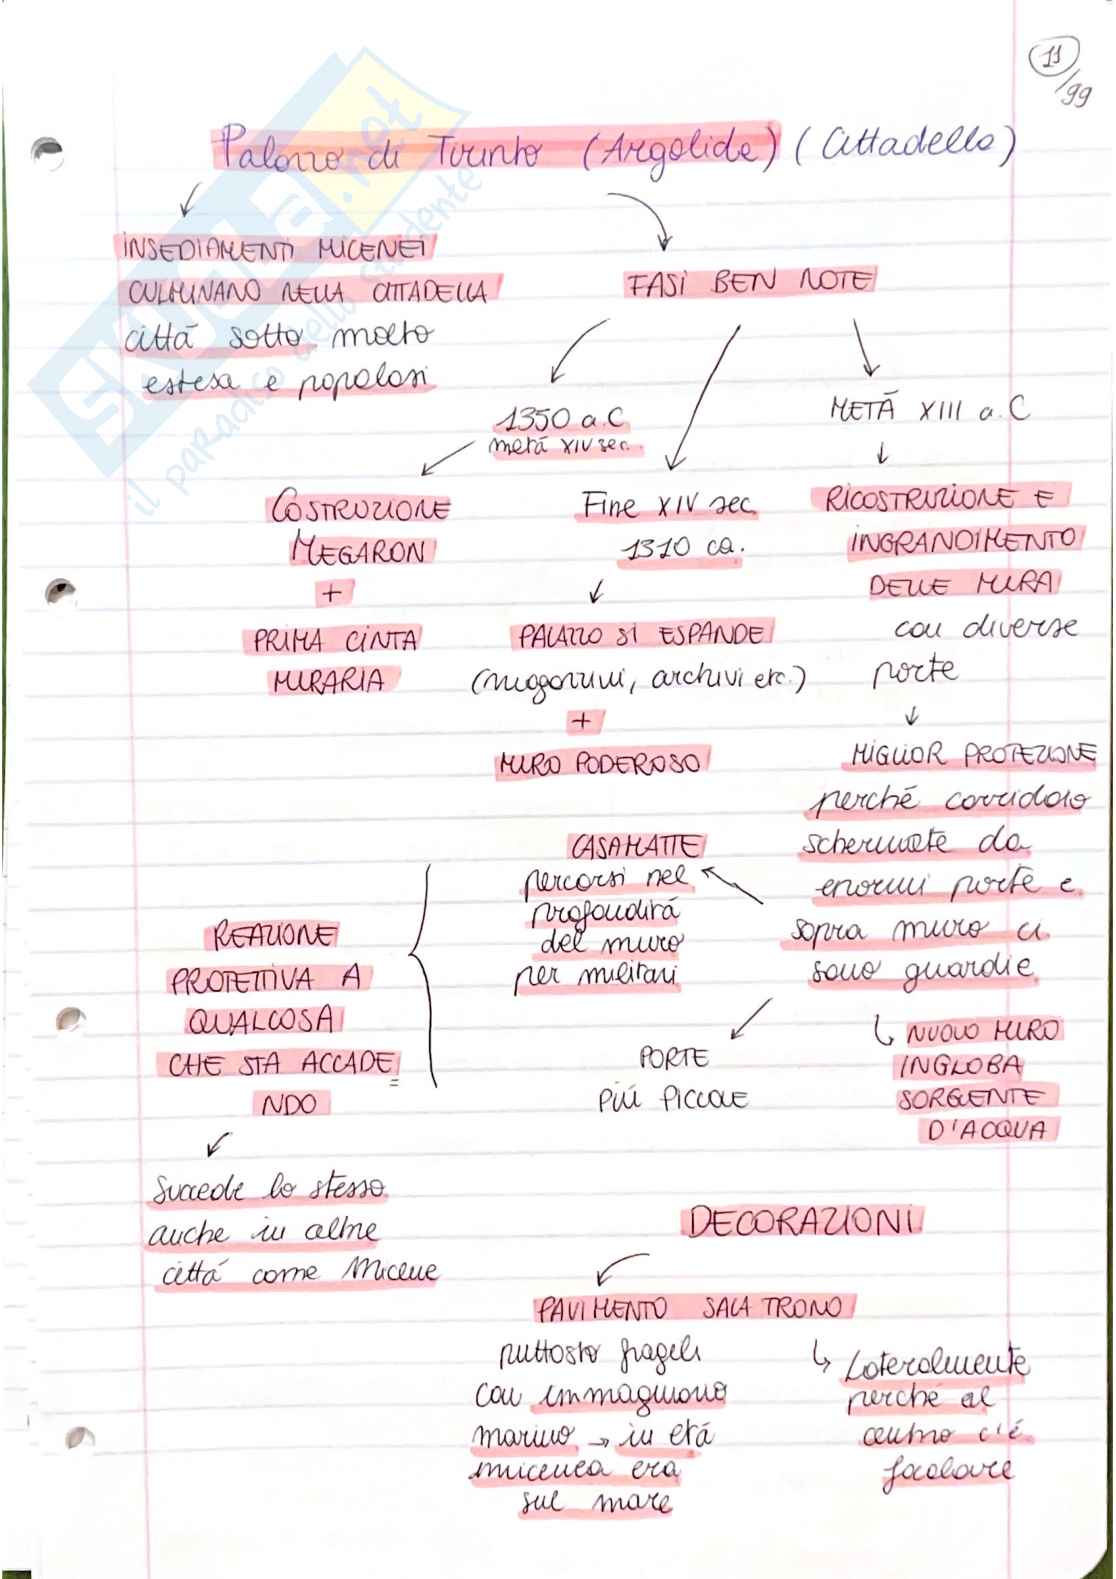 11/99
Palazzo di Tirinto (Argolide) (Cittadella)
INSEDIAMENTI MICENEI
CULMINANO NELLA CITTADELLA
città sotto molto
estesa e popolosi
FASI BEN NOTE
1350 a.C
metá XIV sec.
COSTRUZIONE
MEGARON
+
PRIMA CINTA
MURARIA
Fine XIV sec
1310 ca.
PALAZZO SI ESPANDE
(magazzini, archivi etc.)
+
MURO PODEROSO
METÁ XIII a.C
RICOSTRUZIONE E
INGRANDIMENTO
DELLE MURA
con diverse
porte
MIGLIOR PROTEZIONE
perché corridoio
schermate da
enormi porte e
sopra muro ci
sono guardie
CASAMATTE
percorsi nel
profonditá
del muro
per militari
PORTE
PIÚ PICCOLE
NUOVO MURO
INGLOBA
SORGENTE
D'ACQUA
REAZIONE
PROTETTIVA A
QUALCOSA
CHE STA ACCADE
NDO
Succede lo stesso
anche in altre
cittá come Micene
DECORAZIONI
PAVIMENTO SALA TRONO
piuttosto fragili
con immaginario
marino → in etá
micenea era
sul mare
Lateralmente
perché al
centro c'é
focolare
SKUOLA.net
il paradiso dello studente